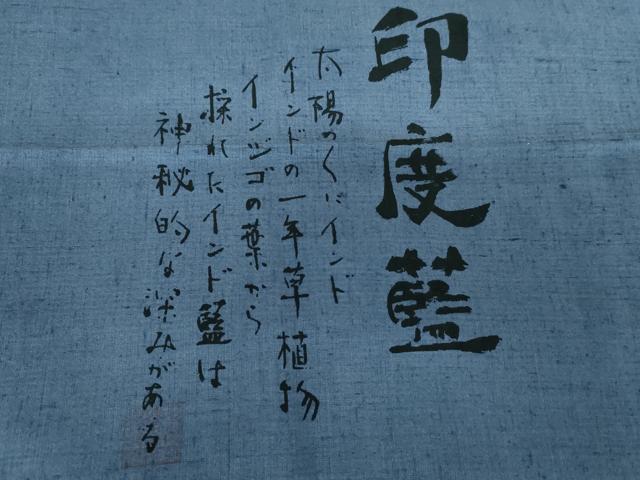 印度藍
太陽のくにインド
インドの一年草植物
インジゴの葉から
採れたインド藍は
神秘的な深みがある